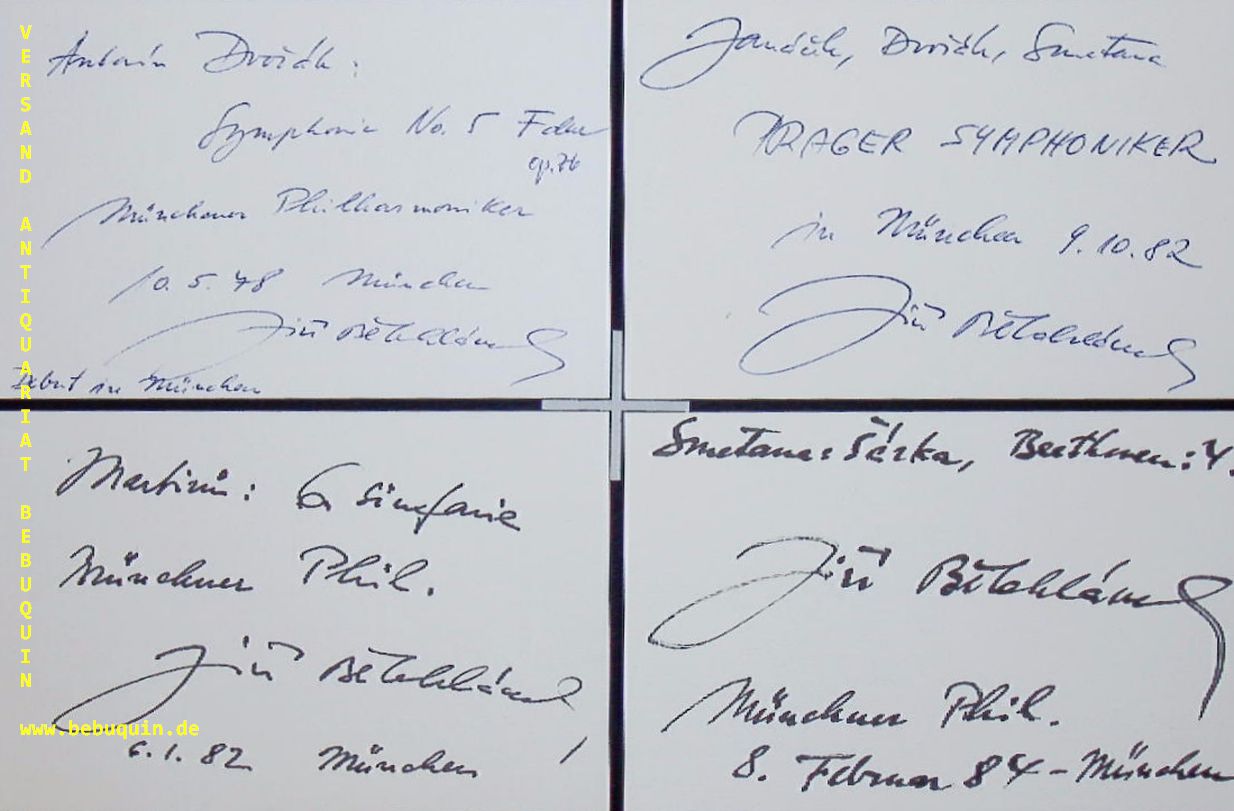 Antonín Dvořák:
Symphonie No. 5 F dur
op. 76
Münchener Philharmoniker
10. 5. 78 München
Jiří Bělohlávek
Debut in München
Janáček, Dvořák, Smetana
PRAGER SYMPHONIKER
in München 9. 10. 82
Jiří Bělohlávek
Martinů: 6. Sinfonie
Münchner Phil.
Jiří Bělohlávek
6. 1. 82 München
Smetana: Šárka, Beethoven: 4.
Jiří Bělohlávek
Münchner Phil.
8. Februar 84 - München
VERSAND ANTIQUARIAT BEBUQUIN
www.bebuquin.de